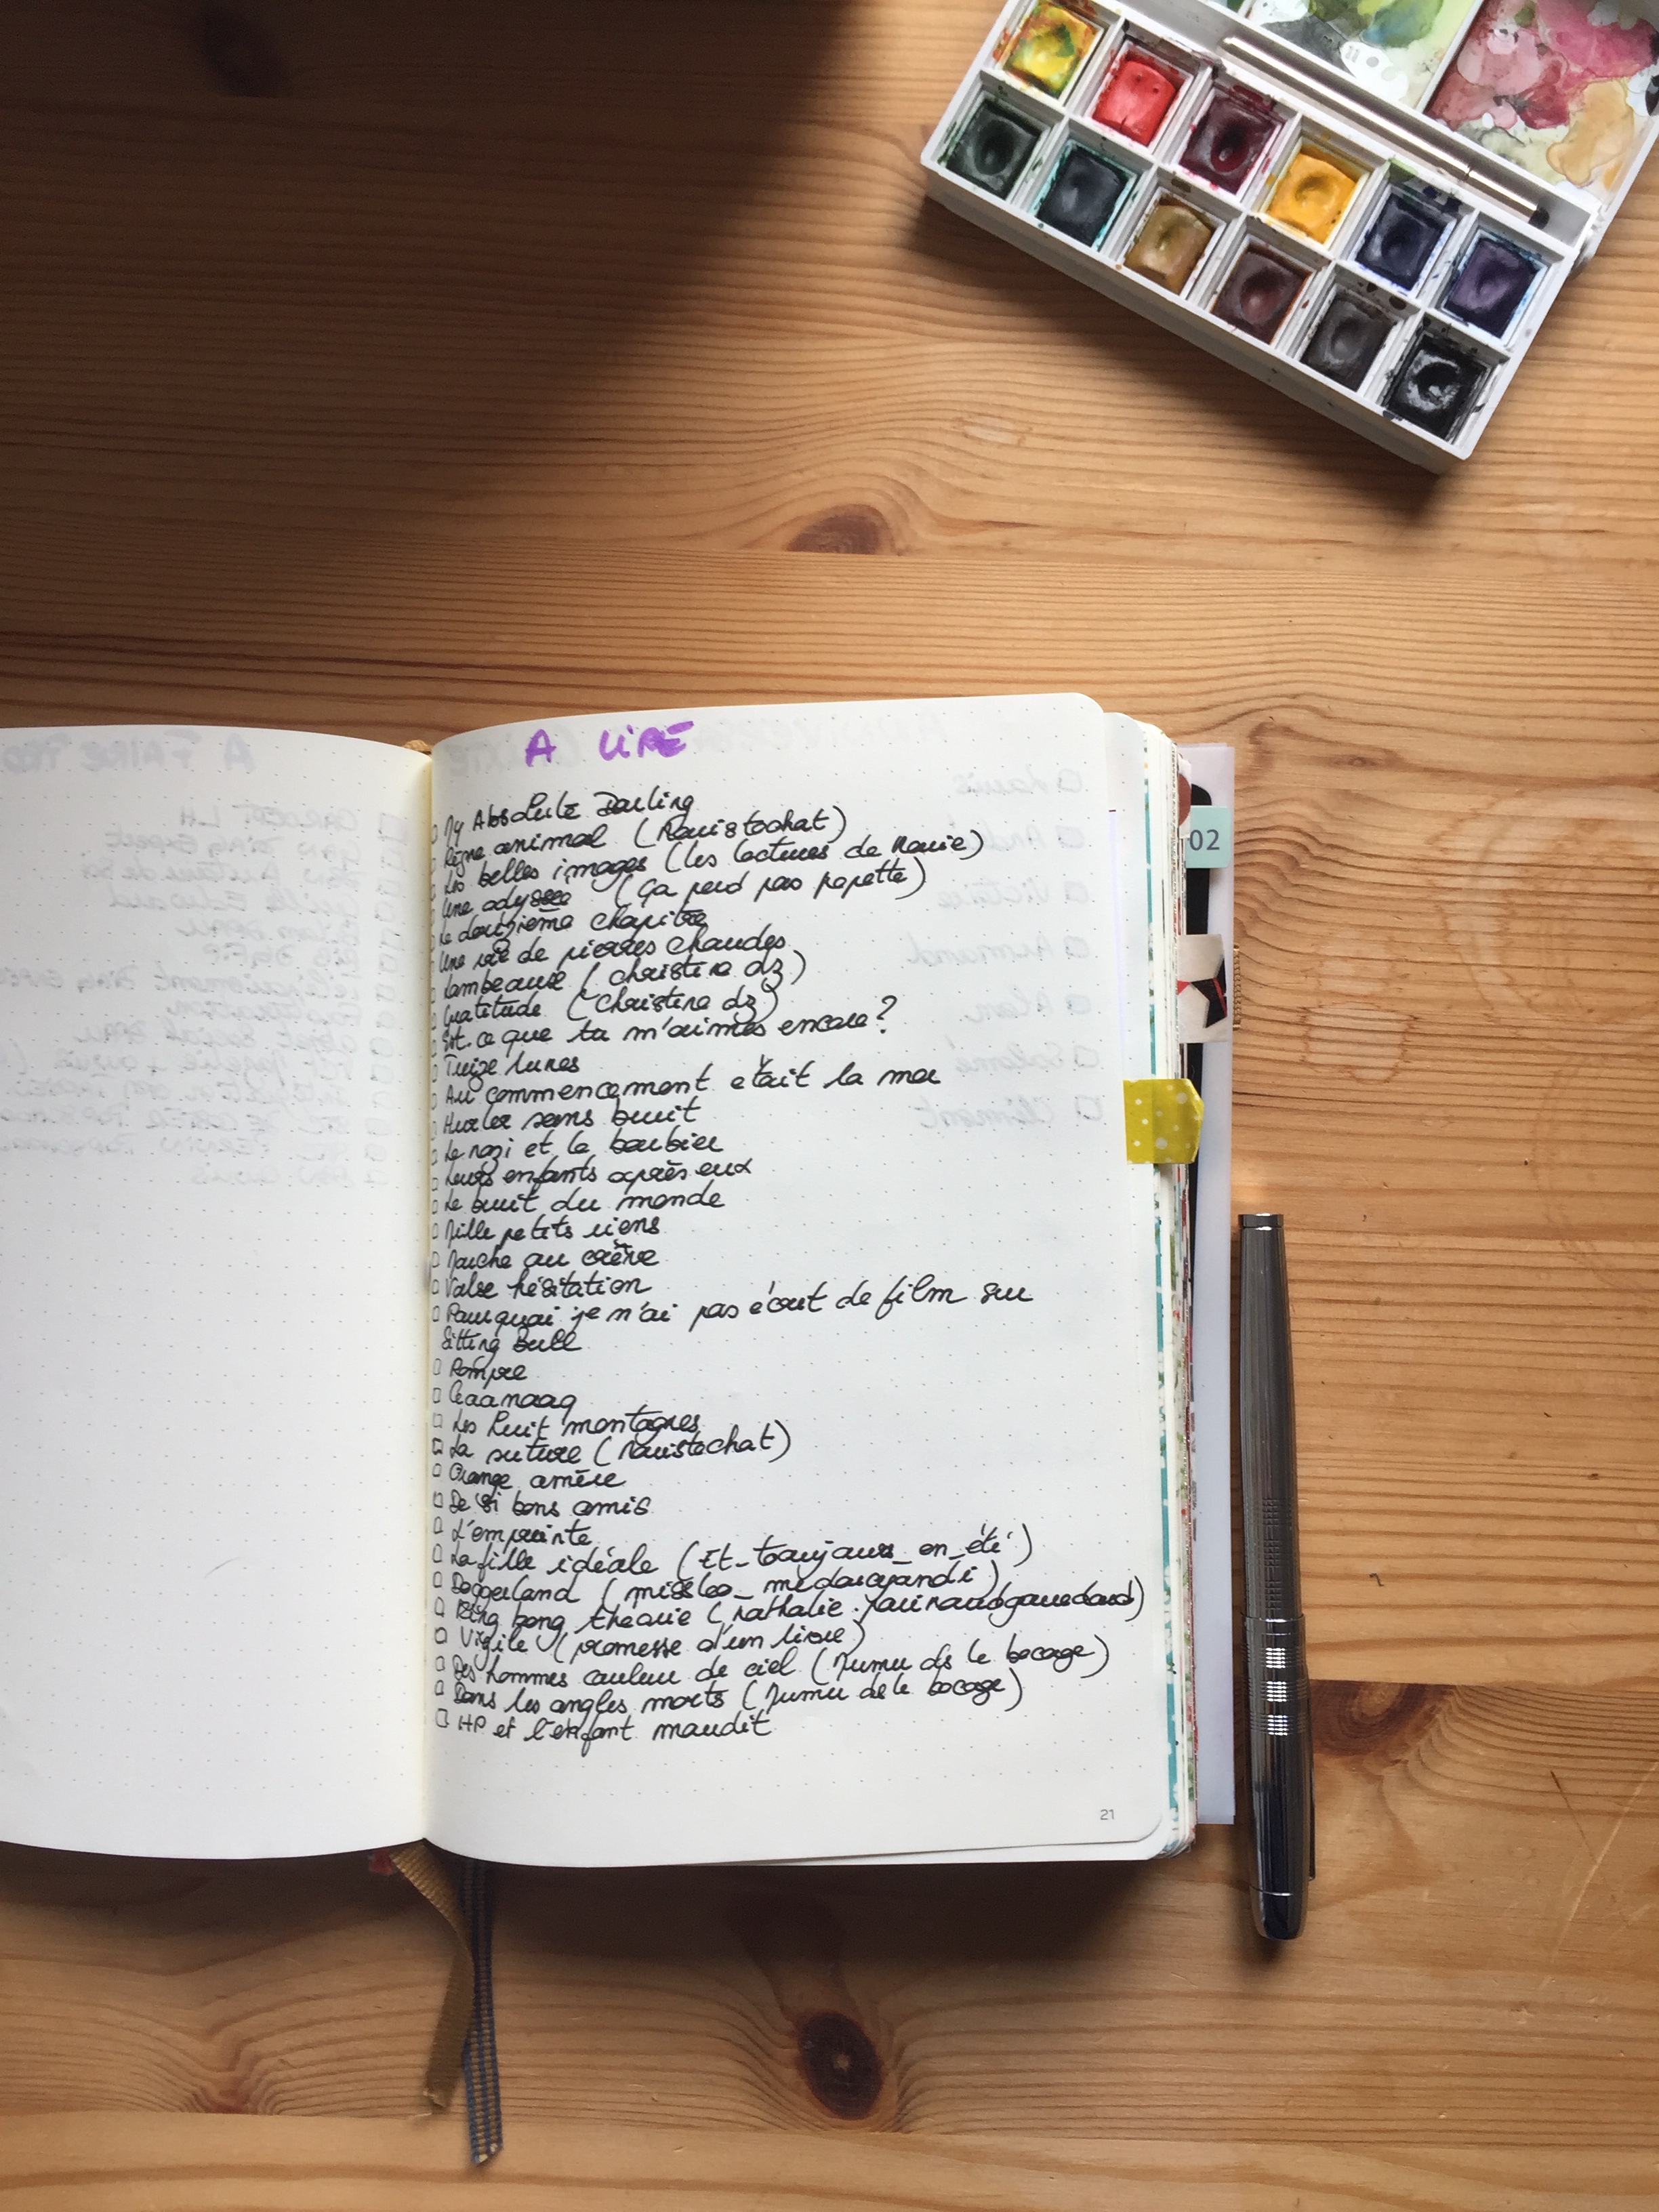 A LIRE
My Absolute Darling
Règne animal (Mauistochat)
Les belles images (les lectures de Marie)
Une odyssée (Ça perd pas papette)
Le douzième chapitre
Une vie de pierres chaudes
Lambeaux (christina dz)
Gratitude (Christina dz)
Est-ce que tu m'aimes encore?
Treize lunes
Au commencement était la mer
Hurler sans bruit
Le nazi et le barbier
Leurs enfants après eux
Le bruit du monde
Mille petits riens
Marche au crève
Valse hésitation
Pourquoi je n'ai pas écrit de film sur
Sitting Bull
Rompre
Ceaanaaq
Les huit montagnes
La suture (Mauistochat)
Orange amère
De si bons amis
L'empreinte
La fille idéale (Et_toujours_en_été)
Doggerland
King kong théorie
Virgile (promesse d'un livre)
Des hommes couleur de ciel (Mumu ds le bocage)
Dans les angles morts (Mumu ds le bocage)
HP et l'enfant maudit
21
02